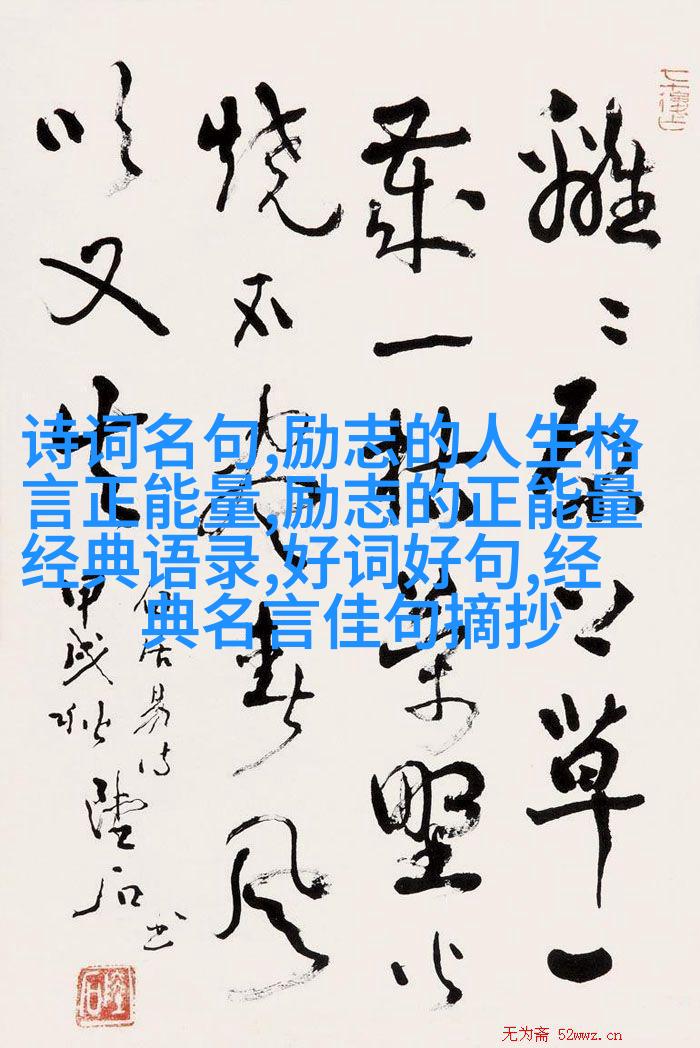 離〻原上草一
歲一枯榮野火
燒不盡春風
吹又生
居易诗
甲戌秋
石书
诗词名句,励志的人生格
言正能量,励志的正能量
经典语录,好词好句,经
典名言佳句摘抄
无为斋 52wwz.cn